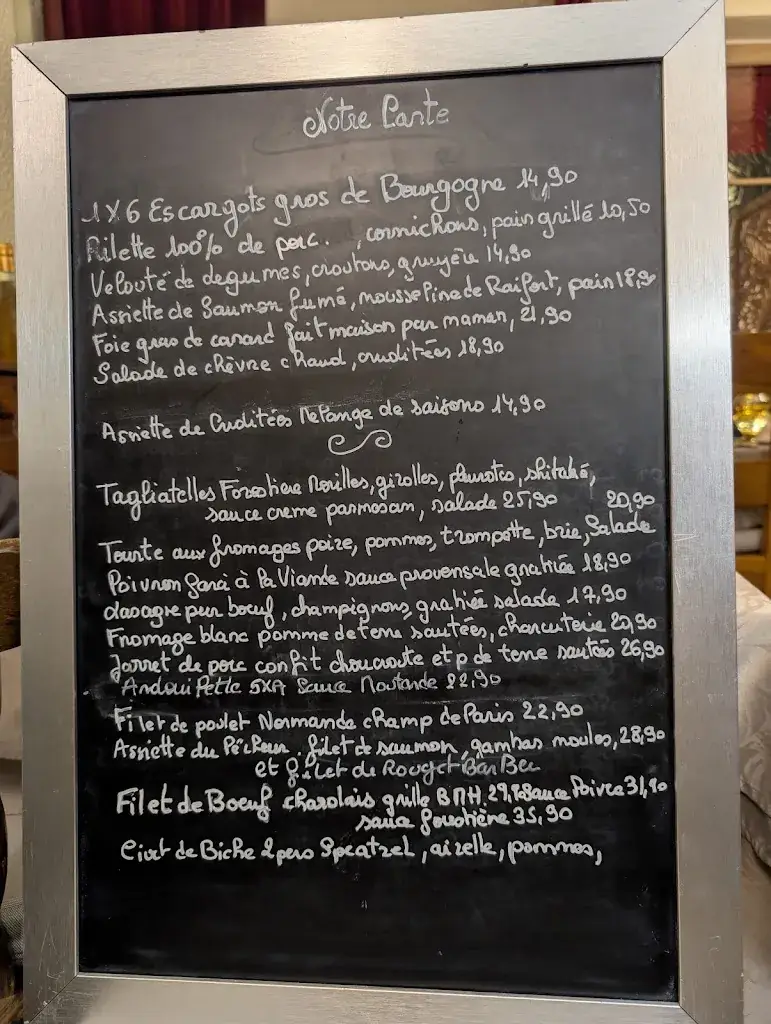 Notre Carte
1X6 Escargots gros de Bourgogne 14,90
Rilette 100% de porc. , cornichons, pain grillé 10,50
Velouté de degumes, croutons, gruyère 14,90
Assiette de Saumon fumé, mousseline de Raifort, pain 18,90
Foie gras de canard fait maison par maman, 21,90
Salade de chèvre chaud, crudités 18,90
Assiette de Crudités mélange de saisons 14,90
Tagliatelles Forestière Nouilles, girolles, pleurotes, shitaké,
sauce creme parmesan, salade 25,90 20,90
Tourte aux fromages poire, pommes, trompette, brie, Salade
Poivron farci à la Viande sauce provensale gratinée 18,90
lasagne pur boeuf, champignons, gratinée salade 17,90
Fromage blanc pomme de terre sautées, charcuterie 20,90
Jarret de porc confit choucroute et p de terre sautées 26,90
Andouillette 5XA Sauce Moutarde 22,90
Filet de poulet Normande champ de Paris 22,90
Assiette du Pécheur, filet de saumon, gambas moules, 28,90
et filet de Rouget BarBet
Filet de Boeuf charolais grillé BMH 29, Sauce Poivre 31,90
sauce forestière 35,90
Civet de Biche 2 pers Speatzel, airelle, pommes,